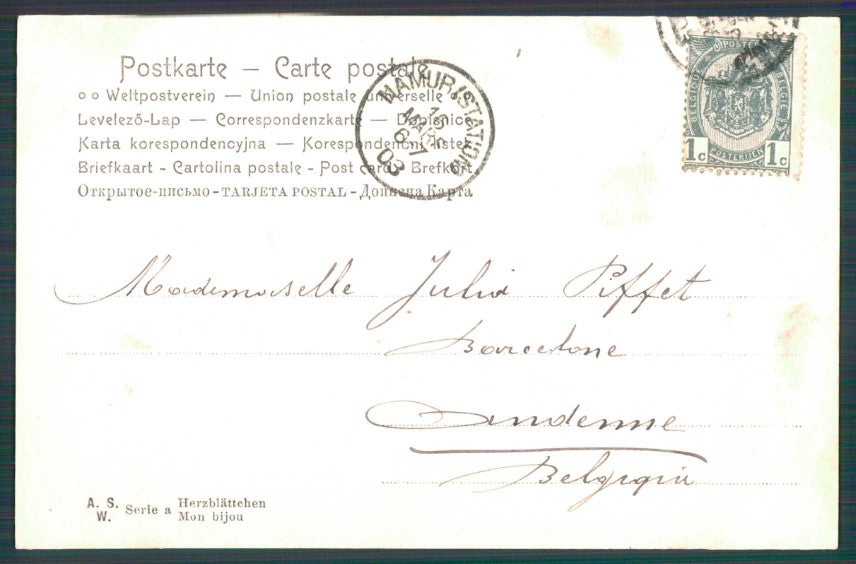 Postkarte — Carte postale
Weltpostverein — Union postale universelle
Levelező-Lap — Correspondenzkarte — Dopisnice
Karta korespondencyjna — Korespondenční listek
Briefkaart - Cartolina postale - Post card - Brefkort
Открытое-письмо - TARJETA POSTAL - Дописна Карта
NAMUR (STATION)
MARS
6-7
03
BELGIQUE POSTES BELGIË
1c POSTERIJEN 1c
Mademoiselle Julia Piffet
Barcelone
Andenne
Belgiqia
A. S. W. Serie a Herzblättchen
Mon bijou